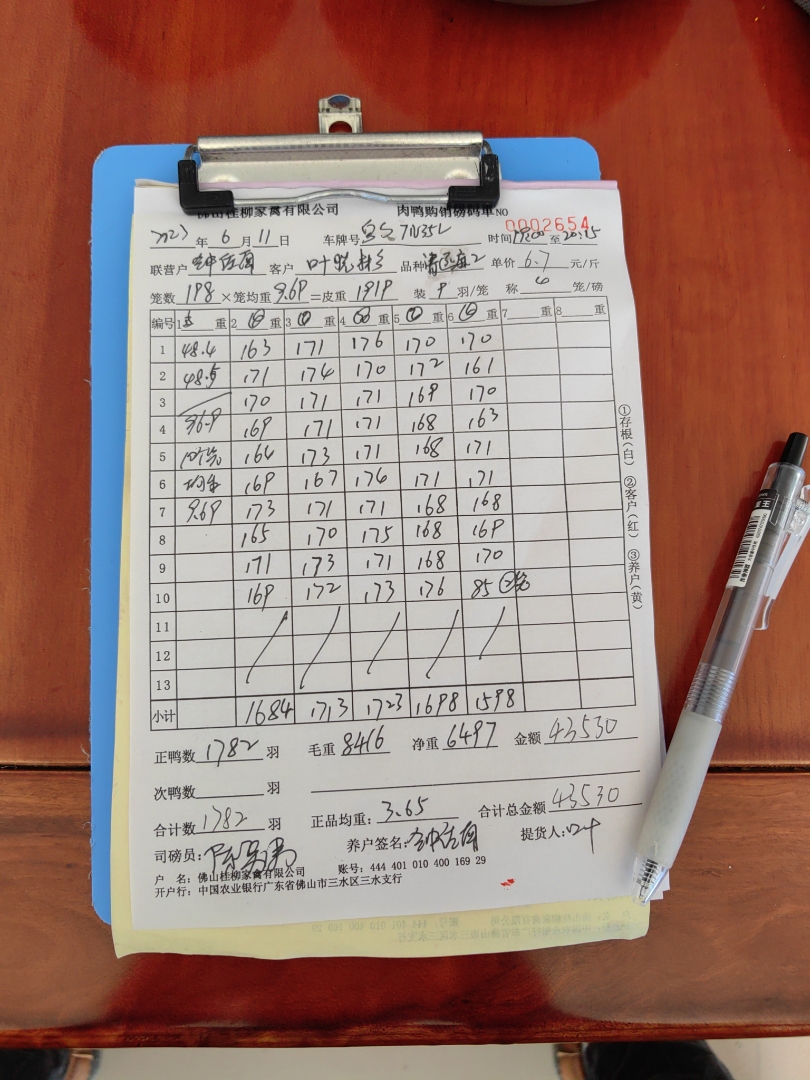 佛山桂柳家禽有限公司 肉鸭购销磅码单 NO 0002654
2023 年 6 月 11 日 车牌号 时间 19:00 至 20:15
联营户 客户 叶 品种 单价 6.7 元/斤
笼数 198 × 笼均重 9.69 = 皮重 1919 装 9 羽/笼 称 笼/磅
编号 1 重 2 重 3 重 4 重 5 重 6 重 7 重 8 重
1 48.4 163 171 176 170 170
2 48.5 171 174 170 172 161
3 170 171 171 169 170
4 96.9 169 171 171 168 163
5 164 173 171 168 171
6 均重 169 167 174 171 171
7 9.69 173 171 171 168 168
8 165 170 175 168 169
9 171 173 171 168 170
10 169 172 173 176 85
11
12
13
小计 1684 1713 1723 1698 1598
正鸭数 1782 羽 毛重 8416 净重 6497 金额 43530
次鸭数 羽
合计数 1782 羽 正品均重: 3.65 合计总金额 43530
司磅员: 养户签名: 提货人: 叶
户 名: 佛山桂柳家禽有限公司 账号: 444 401 010 400 169 29
开户行: 中国农业银行广东省佛山市三水区三水支行
①存根(白) ②客户(红) ③养户(黄)